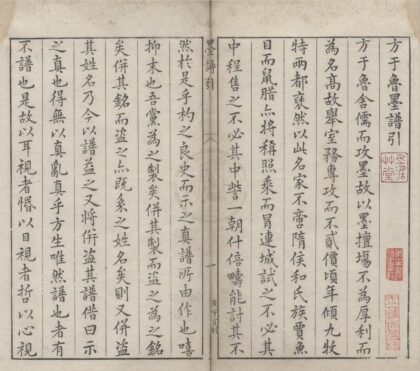 方于魯墨譜引
方于魯舍儒而攻墨故以墨擅塲不為厚利而
為名高故舉室務專攻而不貳價頃年傾九牧
特兩都裒然以此名家不啻隋侯和氏族賈魚
目而鼠腊亦將稱照乘而冒連城試之不必其
中程售之不必其中訾一朝什倍疇能討其不
墨譜引
一
然於是乎杓之良史而示之真譜所由作也嘻
抑末也吾黨為之製矣併其製而盜之為之銘
矣併其銘而盜之亦既系之姓名矣則又併盜
其姓名乃今以譜益之又將併盜其譜借曰示
之真也得無以真亂真乎方生唯然譜也者有
不譜也是故以耳視者惽以目視者哲以心視